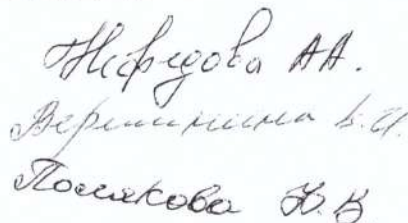 Нефедова АА.
Вершинина В.И.
Полякова Н.В